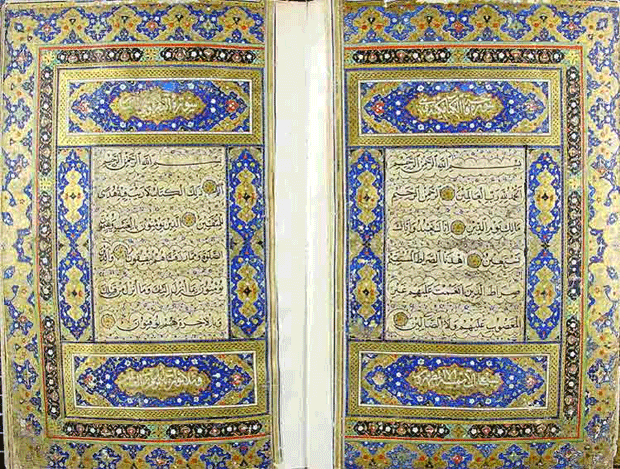 بسم الله الرحمن الرحيم
الحمد لله رب العالمين الرحمن الرحيم
مالك يوم الدين اياك نعبد واياك
نستعين اهدنا الصراط المستقيم
صراط الذين انعمت عليهم غير
المغضوب عليهم ولا الضالين
سورة البقرة
بسم الله الرحمن الرحيم
الم ذلك الكتاب لا ريب فيه هدى
للمتقين الذين يؤمنون بالغيب ويقيمون
الصلوة ومما رزقناهم ينفقون والذين
يؤمنون بما انزل اليك وما انزل من قبلك
وبالاخرة هم يوقنون